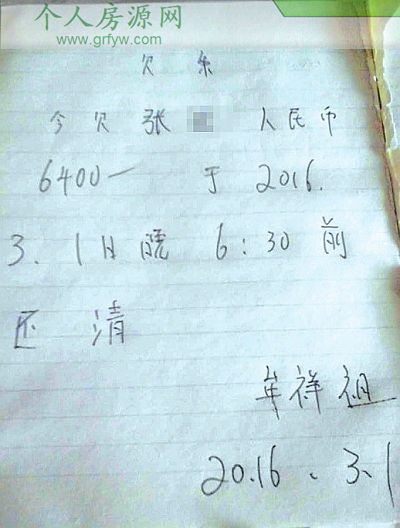 个人房源网
www.grfyw.com
欠条
今欠张 人民币
6400一 于 2016.
3. 1日晓 6:30前
还清
牟祥祖
2016、3.1